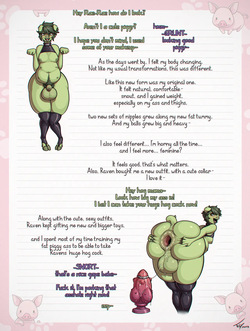 Hey Rae-Rae how do I look?
Aren't I a cute piggy?
I hope you don't mind, I used
some of your makeup~
hmm~
~GRUNT~
looking good
piggy~
As the days went by, I felt my body changing.
Not like my usual transformations, this was different.
Like this new form was my original one.
It felt natural, comfortable -
snout, and I gained weight,
especially on my ass and thighs.
two new sets of nipples grew along my new fat tummy.
And my balls grew big and heavy~
I also feel different... I'm horny all the time...
and I feel more... feminine?
It feels good, that's what matters.
Also, Raven bought me a new outfit, with a cute collar~
I love it~
Look how big my ass is!
I bet I can take your huge hog cock now!
Along with the cute, sexy outfits,
Raven kept getting me new and bigger toys.
and I spent most of my time training my
fat piggy ass to be able to take
Ravens huge hog cock.
~SNORT~
that's a nice gape babe~
Fuck it, I'm parking that
asshole right now!